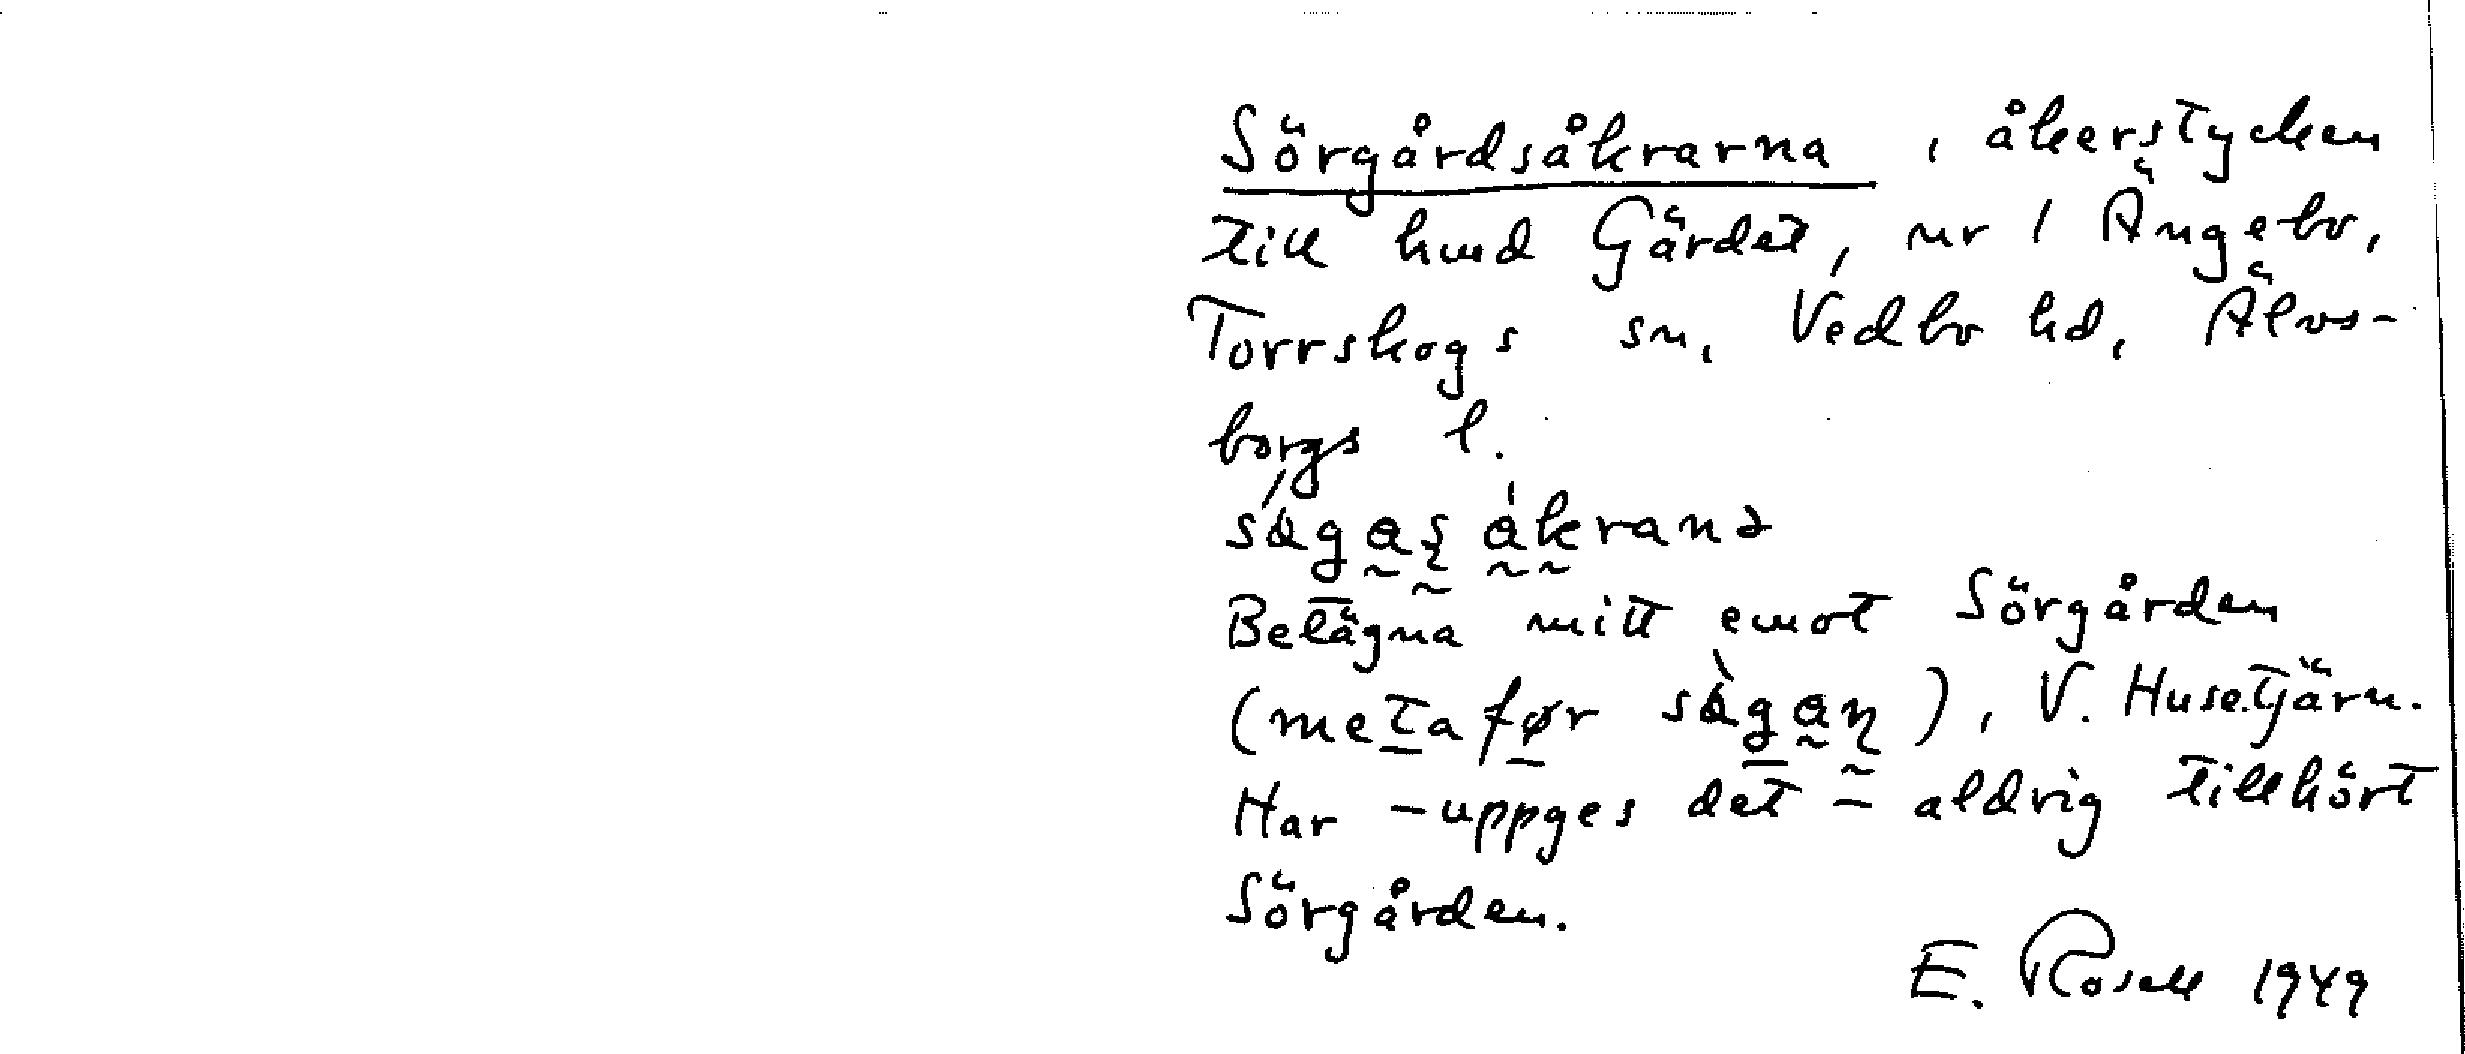 Sörgårdsåkrarna, åkerstycken
till hmd Gärdet, nr 1 Ängebo,
Torrskogs sn, Vedbo hd, Älvs-
borgs l.
Belägna mitt emot Sörgården
(meta før), V. Husetjärn.
Har - uppges det - aldrig tillhört
Sörgården.
E. Rosell 1949